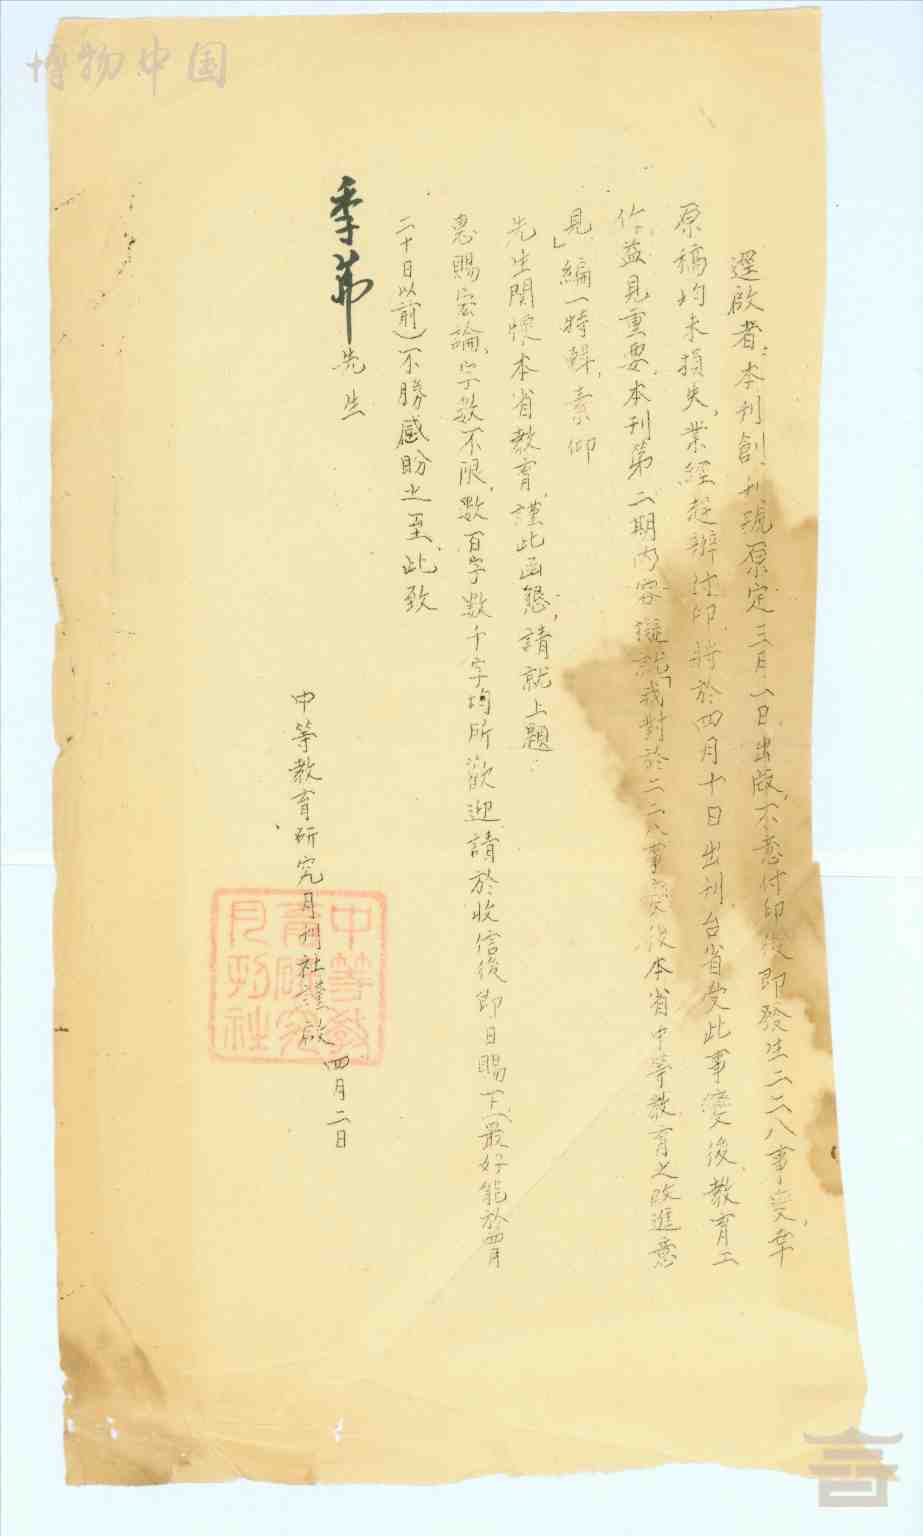 逕啟者:本刊創刊號原定三月一日出版,不意付印後即發生二二八事变,幸
原稿均未損失,業經趕辦付印,將於四月十日出刊,台省受此事變後,教育工
作益見重要,本刊第二期內容擬就「我對於二二八事変後本省中等教育之改進意
見」編一特輯,素仰
先生関懷本省教育,謹此函懇,請就上題
惠賜宏論,字数不限,數百字數千字均所歡迎,請於收信後即日賜下(最好能於四月
二十日以前)不勝感盼之至,此致
季茀先生
中等教育研究月刊社謹啟 四月二日
中等教
育研究
月刊社
博物中国